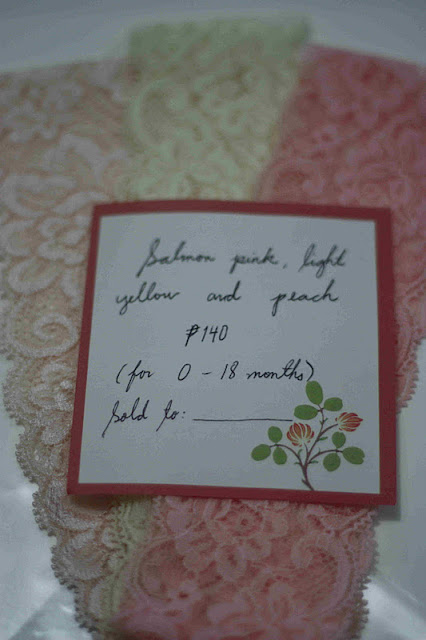 Salmon pink, light
yellow and peach
₱140
(for 0 - 18 months)
Sold to: ____________